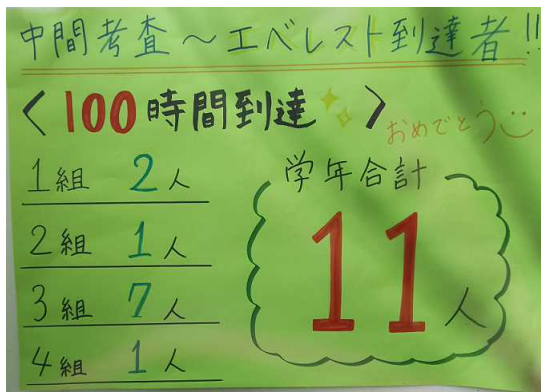 中間考査～エベレスト到達者!!
〈100時間到達✨〉
おめでとう
1組 2人
2組 1人
3組 7人
4組 1人
学年合計
11人